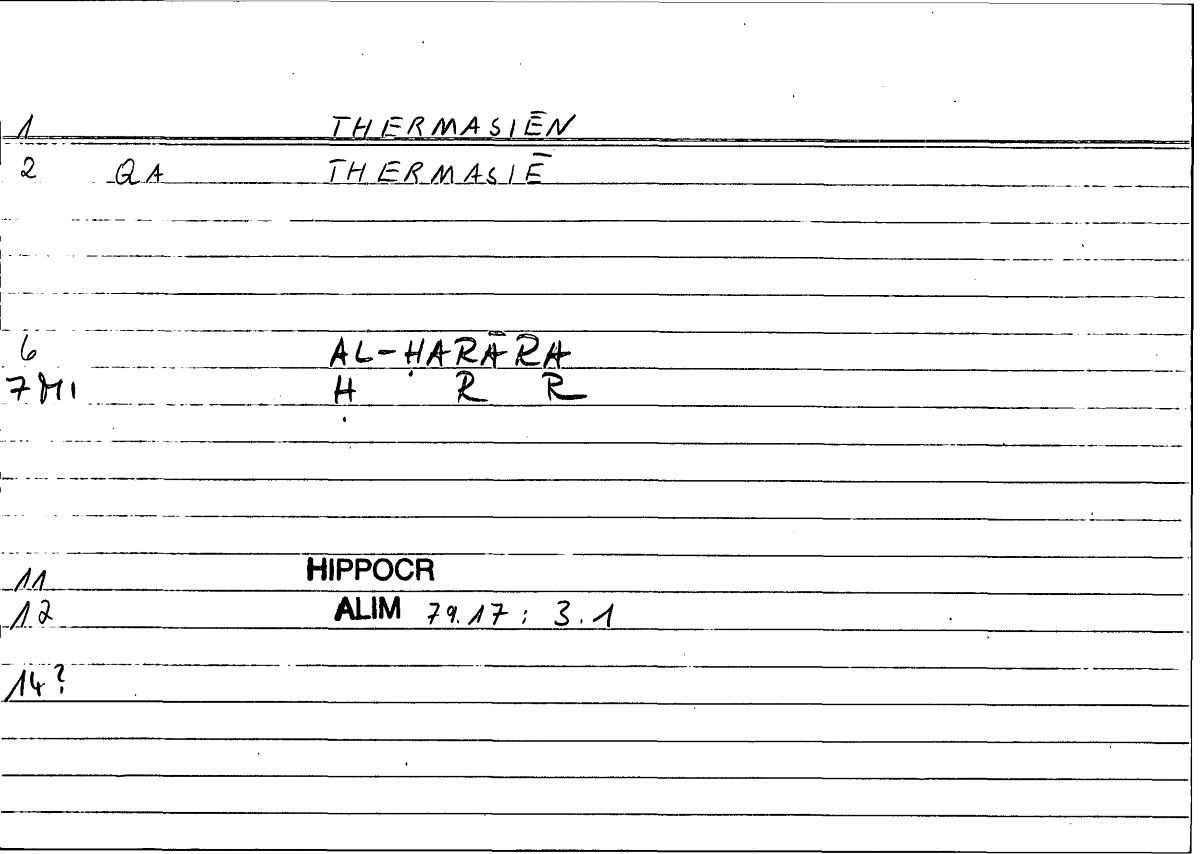 1 THERMASIĒN
2 QA THERMASIĒ
6 AL-ḤARĀRA
7 MI Ḥ R R
11 HIPPOCR
12 ALIM 79.17 : 3.1
14?